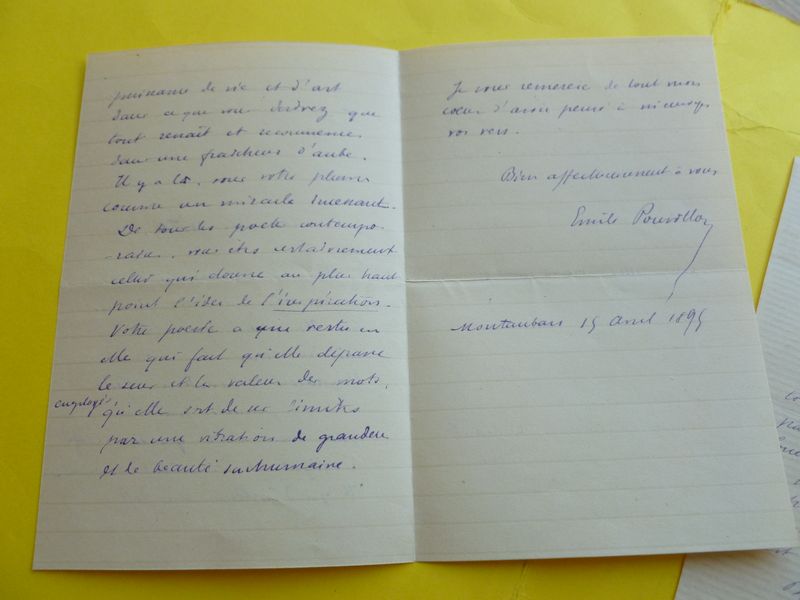 puissance de vie et d'art
dans ce que vous écrivez que
tout renaît et recommence
dans une fraîcheur d'aube.
Il y a là, sous votre plume
comme un miracle incessant.
De tous les poètes contempo-
rains, vous êtes certainement
celui qui donne au plus haut
point l'idée de l'inspiration.
Votre poésie a une vertu en
elle qui fait qu'elle dépasse
le sens et la valeur des mots
employés
qu'elle sort de ses limites
par une vibration de grandeur
et de beauté surhumaine.
Je vous remercie de tout mon
coeur d'avoir pensé à m'envoyer
vos vers.
Bien affectueusement à vous
Emile Pouvillon
Montauban 15 avril 1895